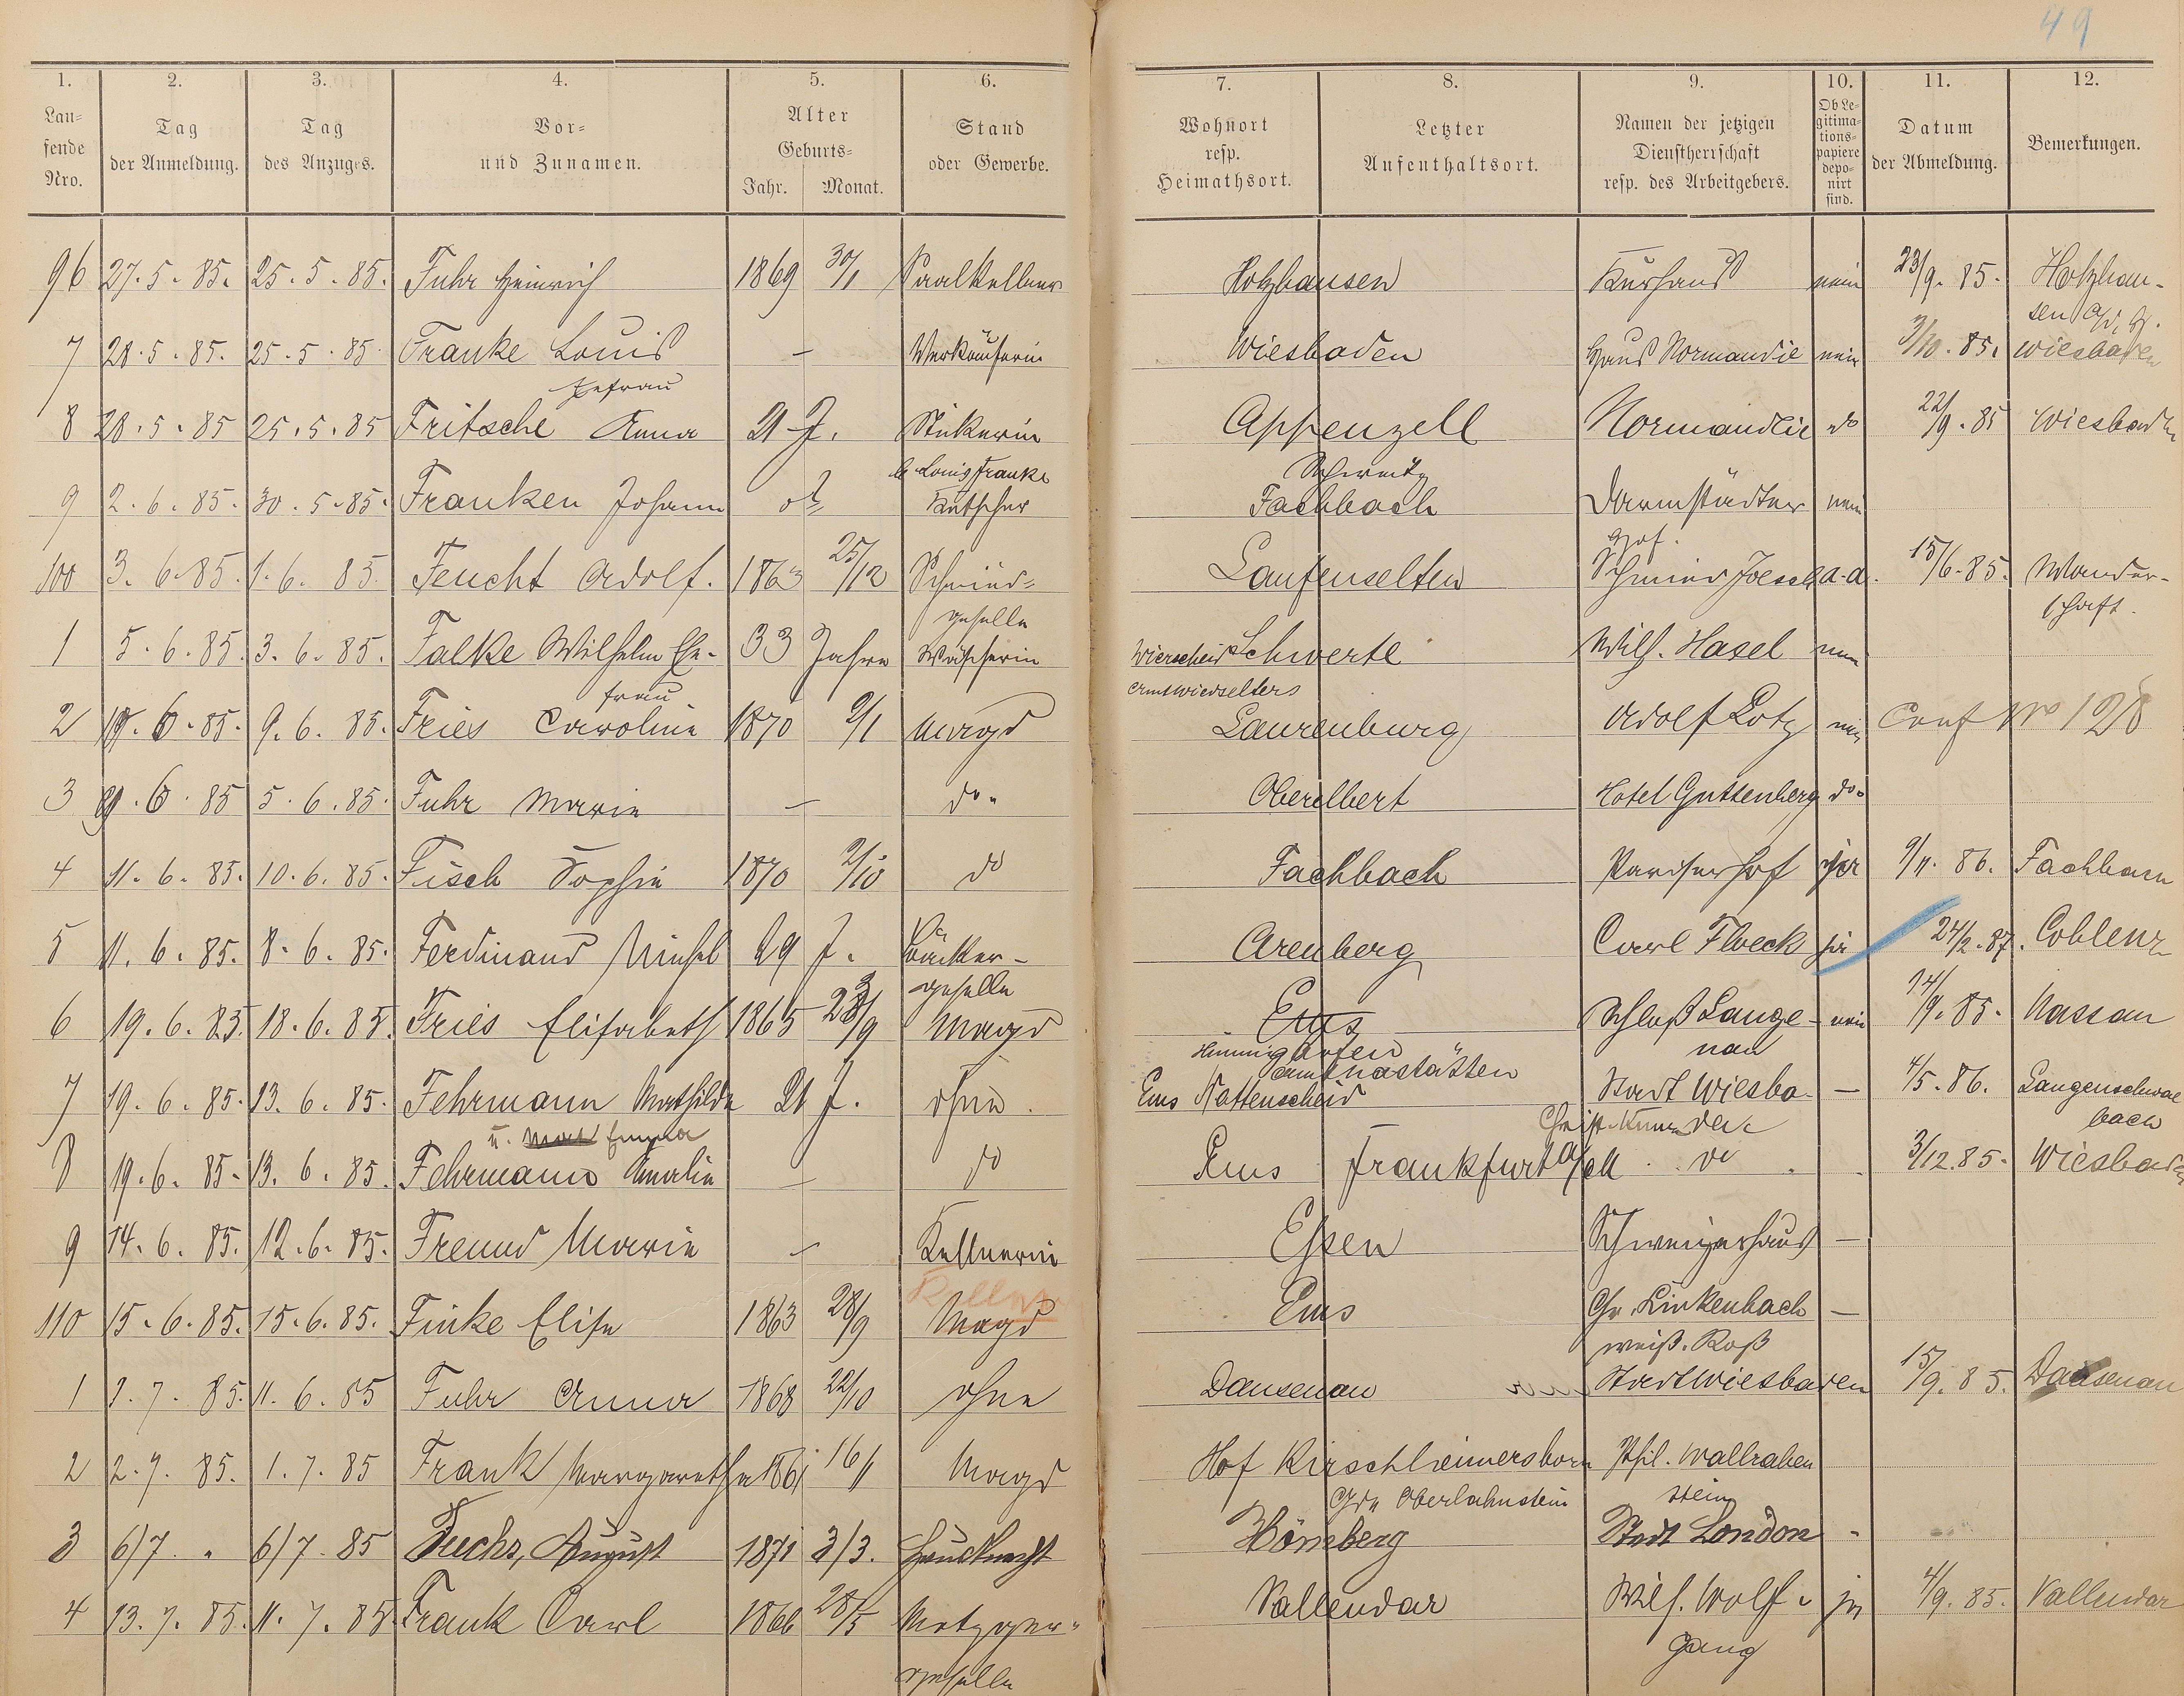 49
1. 2. 3. 4. 5. 6. 7. 8. 9. 10. 11. 12.
Lau=
fende
Nro.
Tag
der Anmeldung.
Tag
des Anzuges.
Vor=
und Zunamen.
Alter
Geburts=
Jahr. Monat.
Stand
oder Gewerbe.
Wohnort
resp.
Heimathsort.
Letzter
Aufenthaltsort.
Namen der jetzigen
Dienstherrschaft
resp. des Arbeitgebers.
Ob Le=
gitima=
tions=
papiere
depo=
nirt
sind.
Datum
der Abmeldung.
Bemerkungen.
96 27.5.85. 25.5.85. Fuhr Heinrich 1869 30/1 Saalkellner Holzhausen Kurhaus nein 23/9.85. Holzhau-
sen
7 28.5.85. 25.5.85. Franke Louis — Verkäuferin Wiesbaden Haus Normandie nein 3/10.85. Wiesbaden
Ehefrau
8 28.5.85 25.5.85 Fritsche Anna 21 J. Stickerin Appenzell Normandie do 22/9.85 Wiesbaden
b. Louis Franke Schweitz
9 2.6.85. 30.5.85. Franken Johann Kutscher Fachbach Darmstädter nein
Hof.
100 3.6.85. 1.6.85. Feucht Adolf. 1863 25/12 Schmied= Laufenselten Schmied a.a. 15/6.85. Wander-
geselle schaft.
1 5.6.85. 3.6.85. Falke Wilhelm Ehe- 33 Jahre Wäscherin Schwerte Wilh. Hasel nein
frau
2 9.6.85. 9.6.85. Fries Caroline 1870 2/1 Magd Laurenburg Adolf Lotz nein Conf No 128
3 9.6.85 5.6.85. Fuhr Marie — do. Oberelbert Hotel Guttenberg do.
4 11.6.85. 10.6.85. Fisch Sophie 1870 2/10 do Fachbach Pariser Hof ja 9/4.86. Fachbach
5 11.6.85. 8.6.85. Ferdinand Michel 29 J. Bäcker- Arenberg Carl Flöck ja 24/2.87. Coblenz
geselle
6 19.6.85. 18.6.85. Fries Elisabeth 1865 23/9 Magd Ems Schloß Lange- nein 14/9.85. Nassau
nau
Amt Nastätten
7 19.6.85. 13.6.85. Fehrmann Mathilde 21 J. ohne. Ems Nattenscheid Stadt Wiesba- — 4/5.86. Langenschwal
u. Emma den bach
8 19.6.85. 13.6.85. Fehrmann Amalie — do Ems Frankfurt a/M do 3/12.85. Wiesbaden
9 14.6.85. 12.6.85. Freund Marie — Kellnerin Essen Schweizerhaus —
110 15.6.85. 15.6.85. Finke Elise 1863 28/9 Magd Ems Chr. Linkenbach —
weiß. Roß
1 2.7.85. 11.6.85 Fuhr Anna 1868 22/10 ohne Dausenau Stadt Wiesbaden 15/9.85. Dausenau
2 2.7.85. 1.7.85 Frank Margarethe 1861 16/1 Magd Hof Kirschheimersborn Phil. Wallraben
Gde Oberlahnstein stein
3 6/7 " 6/7.85 Fuchs, August 1871 3/3. Hausknecht Hömberg Stadt London -
4 13.7.85. 11.7.85 Frank Carl 1866 28/5 Metzger- Vallendar Wilh. Wolf- ja 4/9.85. Vallendar
geselle gang